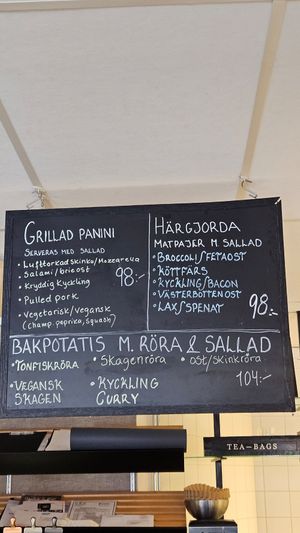 GRILLAD PANINI
SERVERAS MED SALLAD
• Lufttorkad Skinka/Mozzarella
• Salami/brieost
• Kryddig Kyckling
• Pulled pork
• Vegetarisk/vegansk
(champ. paprika, squash)
98:-
HÄRGJORDA
MATPAJER M. SALLAD
• BROCCOLI/FETAOST
• KÖTTFÄRS
• KYCKLING/BACON
• VÄSTERBOTTENOST
• LAX/SPENAT
98:-
BAKPOTATIS M. RÖRA & SALLAD
• TONFISKRÖRA • Skagenröra • OST/Skinkröra
• VEGANSK SKAGEN • KYCKLING CURRY 104:-
TEA-BAGS